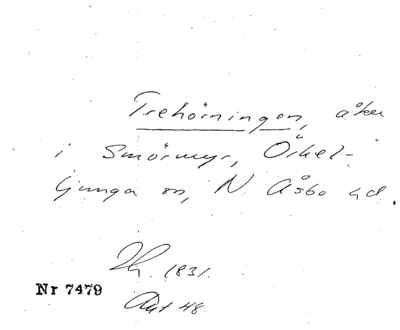 Trehörningen, åker
i Smörmyr, Örkel-
ljunga sn, N. Åsbo hd.
Lh. 1831.
Nr 7479
Akt 48.